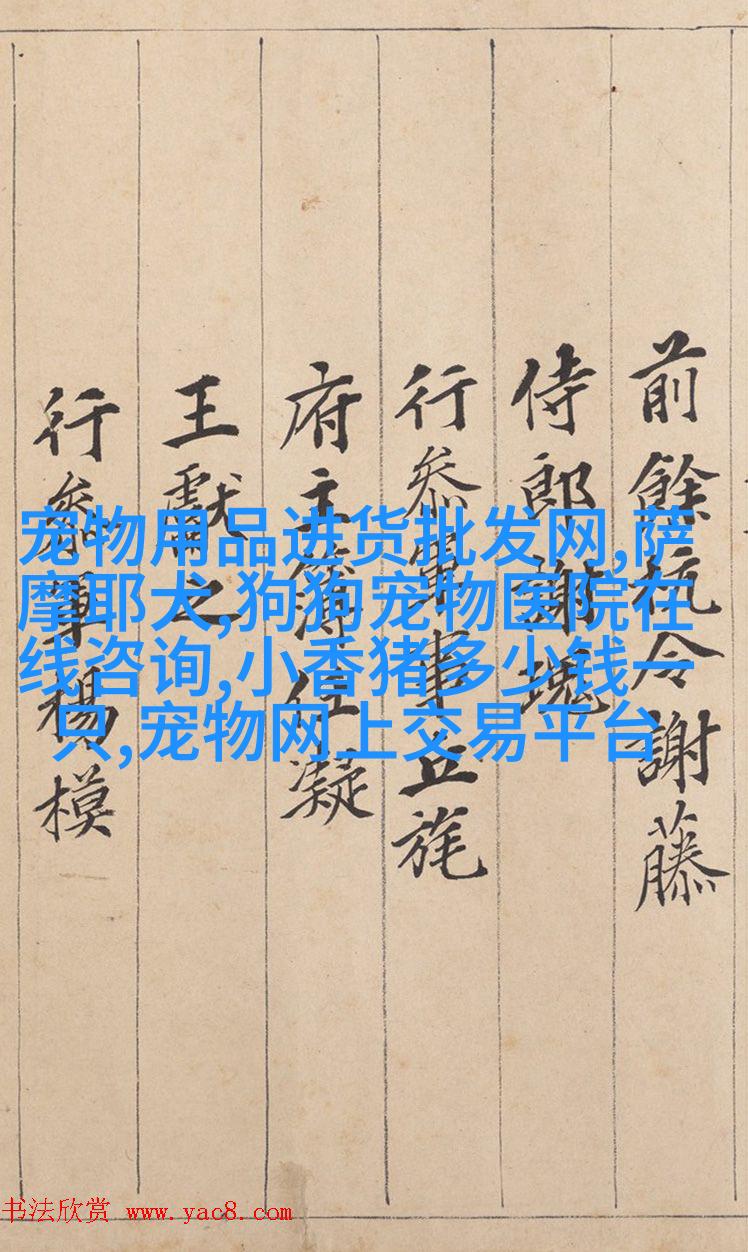 前餘杭令謝藤
侍郎謝瑰
行叅軍事丘旄
府主簿任凝
王獻之
行叅軍楊模
宠物用品进货批发网,萨
摩耶犬,狗狗宠物医院在
线咨询,小香猪多少钱一
只,宠物网上交易平台
书法欣赏 www.yac8.com